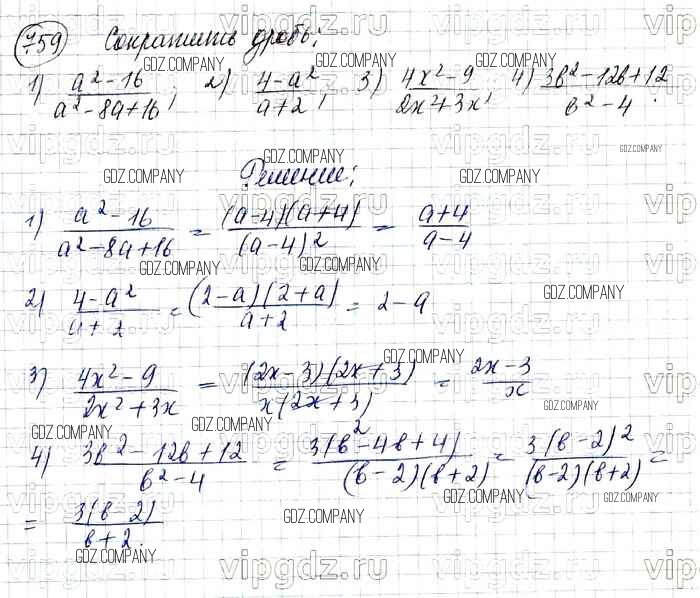 759 Сократить дробь:
1) (a² - 16)/(a² - 8a + 16); 2) (4 - a²)/(a + 2); 3) (4x² - 9)/(2x² + 3x); 4) (3b² - 12b + 12)/(b² - 4).
Решение:
1) (a² - 16)/(a² - 8a + 16) = ((a - 4)(a + 4))/((a - 4)²) = (a + 4)/(a - 4)
2) (4 - a²)/(a + 2) = ((2 - a)(2 + a))/(a + 2) = 2 - a
3) (4x² - 9)/(2x² + 3x) = ((2x - 3)(2x + 3))/(x(2x + 3)) = (2x - 3)/x
4) (3b² - 12b + 12)/(b² - 4) = (3(b² - 4b + 4))/((b - 2)(b + 2)) = (3(b - 2)²)/((b - 2)(b + 2)) =
= (3(b - 2))/(b + 2).
GDZ.COMPANY
vipgdz.ru